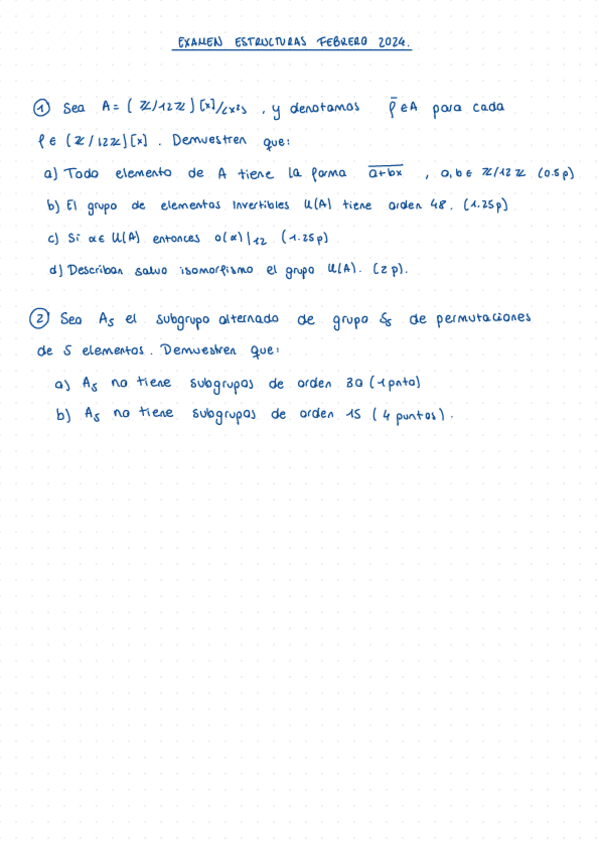 EXAMEN ESTRUCTURAS FEBRERO 2024.
① Sea A = ( ℤ/12ℤ ) [x]/<x²> , y denotamos f̄ ∈ A para cada
f ∈ (ℤ/12ℤ)[x] . Demuestren que:
a) Todo elemento de A tiene la forma \overline{a+bx} , a,b ∈ ℤ/12ℤ (0.5p)
b) El grupo de elementos invertibles U(A) tiene orden 48. (1.25p)
c) Si α ∈ U(A) entonces o(α)|12 (1.25p)
d) Describan salvo isomorfismo el grupo U(A). (2p).
② Sea A₅ el subgrupo alternado de grupo S₅ de permutaciones
de 5 elementos. Demuestren que:
a) A₅ no tiene subgrupos de orden 30 (1 pnto)
b) A₅ no tiene subgrupos de orden 15 (4 puntos).